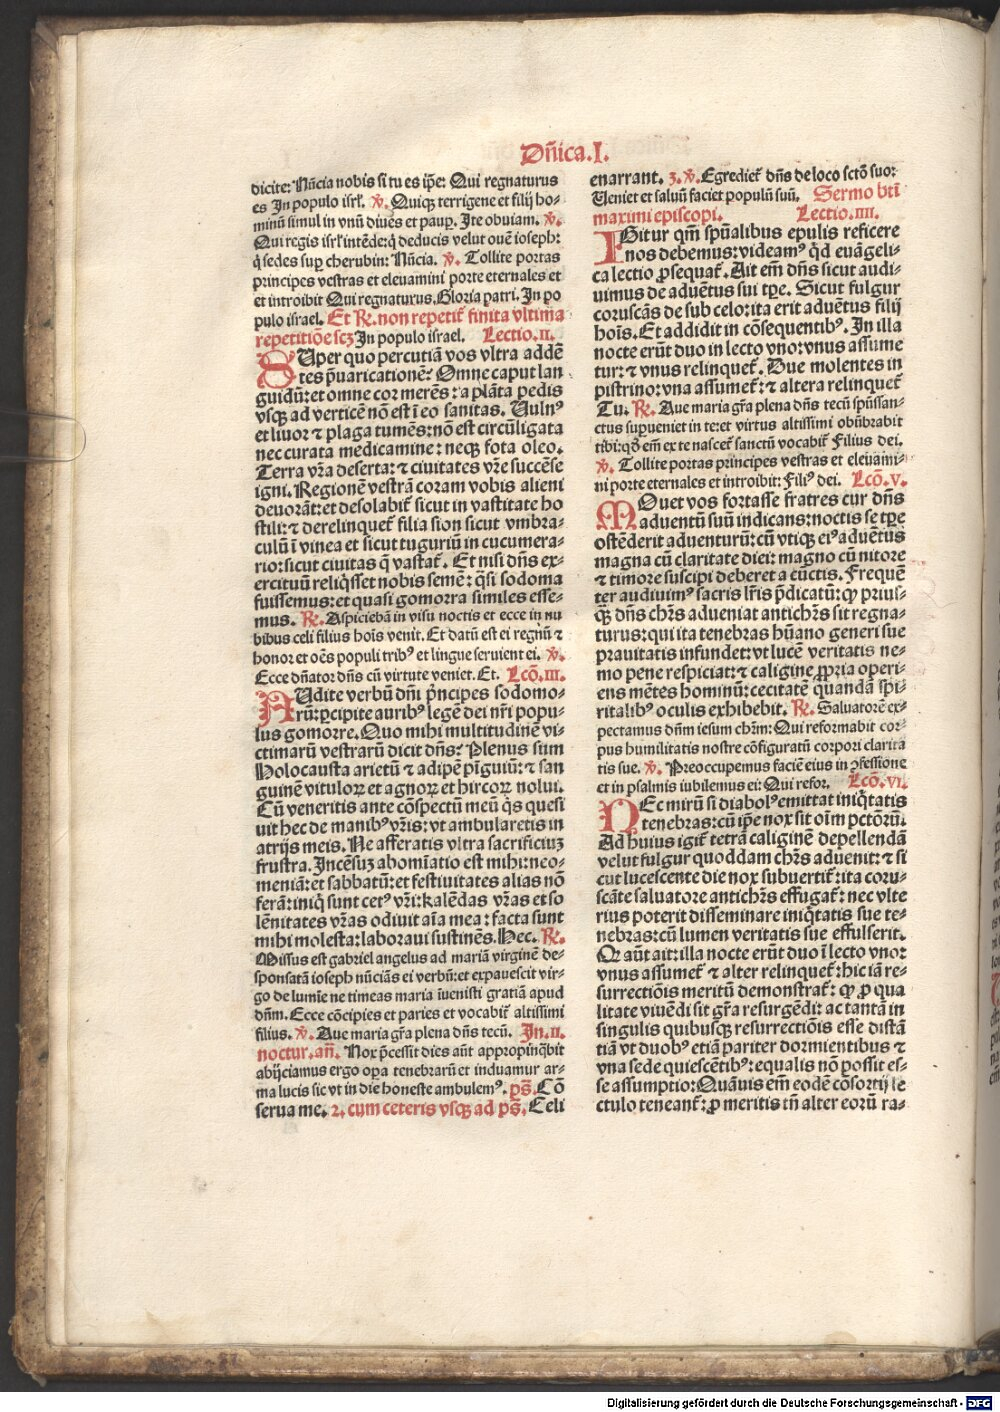 Dñica.I.
dicite: Nūcia nobis si tu es ip̄e: Qui regnaturus
es In populo isrl. ℣. Quiqꝫ terrigene et filij ho-
minū simul in vnū diues et paup. Ite obuiam. ℣.
Qui regis isrl intēde: q̇ deducis velut ouē ioseph:
q̇ sedes sup cherubin: Nūcia. ℣. Tollite portas
principes vestras et eleuamini porte eternales et
et introibit Qui regnaturus. Gloria patri. In po
pulo israel. Et ℟. non repetit̄ finita vltima
repetitiōe scꝫ In populo israel. Lectio. II.
SUper quo percutiā vos vltra addē
tes p̄uaricationē? Omne caput lan
guidū: et omne cor merēs: a plāta pedis
vsqꝫ ad verticē nō est ī eo sanitas. Uuln⁹
et liuor ⁊ plaga tumēs: nō est circūligata
nec curata medicamine: neqꝫ fota oleo.
Terra vr̄a deserta: ⁊ ciuitates vr̄e succēse
igni. Regionē vestrā coram vobis alieni
deuorāt: et desolabit̄ sicut in vastitate ho
stili: ⁊ derelinquet̄ filia sion sicut vmbra-
culū ī vinea et sicut tuguriū in cucumera-
rio: sicut ciuitas q̄ vastat̄. Et nisi dn̄s ex-
ercituū reliq̇sset nobis semē: q̄si sodoma
fuissemus: et quasi gomorra similes esse-
mus. ℟. Aspiciebā in visu noctis et ecce in nu
bibus celi filius hoīs venit. Et datū est ei regnū ⁊
honor et oēs populi trib⁹ et lingue seruient ei. ℣.
Ecce dn̄ator dn̄s cū virtute veniet. Et. Lcō. III.
AUdite verbū dn̄i p̄ncipes sodomo-
rū: p̄cipite aurib⁹ legē dei nr̄i popu-
lus gomorre. Quo mihi multitudinē vi-
ctimarū vestrarū dicit dn̄s? Plenus sum
Holocausta arietū ⁊ adipē pīguiū: ⁊ san
guinē vituloꝝ et agnoꝝ et hircoꝝ nolui.
Cū veneritis ante cōspectū meū q̇s quesi
uit hec de manib⁹ vr̄is: vt ambularetis in
atrijs meis. Ne afferatis vltra sacrificiuꝫ
frustra. Incēsuꝫ abomīatio est mihi: neo-
meniā: et sabbatū: et festiuitates alias nō
ferā: iniq̇ sunt cet⁹ vr̄i: kalēdas vr̄as et so
lēnitates vr̄as odiuit aīa mea: facta sunt
mihi molesta: laboraui sustinēs. Hec. ℟.
Missus est gabriel angelus ad mariā virginē de-
sponsatā ioseph nūciās ei verbū: et expauescit vir-
go de lumīe ne timeas maria īuenisti gratiā apud
dn̄m. Ecce cōcipies et paries et vocabit̄ altissimi
filius. ℣. Aue maria gr̄a plena dn̄s tecū. In. II.
noctur. an̄. Nox p̄cessit dies aūt appropinq̇bit
abijciamus ergo opa tenebrarū et induamur ar-
ma lucis sic vt in die honeste ambulem⁹. ps̄. Cō
serua me. 2. cum ceteris vsqꝫ ad ps̄. Celi
enarrant. 3. ℣. Egrediet̄ dn̄s de loco sctō suo:
Ueniet et saluū faciet populū suū. Sermo bti
maximi episcopi. Lectio. IIII.
IGitur qm̄ spūalibus epulis reficere
nos debemus: videam⁹ q̇d euāgeli-
ca lectio ꝓsequat̄. Ait em̄ dn̄s sicut audi-
uimus de aduētus sui tp̄e. Sicut fulgur
coruscās de sub celo: ita erit aduētus filij
hoīs. Et addidit in cōsequentib⁹. In illa
nocte erūt duo in lecto vno: vnus assume
tur: ⁊ vnus relinquet̄. Due molentes in
pistrino: vna assumet̄: ⁊ altera relinquet̄
Tu. ℟. Aue maria gr̄a plena dn̄s tecū spūssan-
ctus supueniet in te: et virtus altissimi obūbrabit
tibi: qȝ em̄ ex te nascet̄ sanctū vocabit̄ Filius dei.
℣. Tollite portas principes vestras et eleuami-
ni porte eternales et introibit: Fili⁹ dei. Lcō. V.
MOuet vos fortasse fratres cur dn̄s
aduentū suū indicans: noctis se tp̄e
ostēderit aduenturū: cū vtiqꝫ ei⁹ aduētūs
magna cū claritate diei: magno cū nitore
⁊ timore suscipi deberet a cūctis. Frequē
ter audiuim⁹ sacris lr̄is p̄dicatū: ꝙ prius-
q̄ꝫ dn̄s chr̄s adueniat antichr̄s sit regna-
turus: qui ita tenebras hūano generi sue
prauitatis infundet: vt lucē veritatis ne-
mo pene respiciat: ⁊ caligine ꝓpria operi-
ens mētes hominū: cecitatē quandā spi-
ritalib⁹ oculis exhibebit. ℟. Saluatorē ex-
pectamus dn̄m iesum chr̄m: Qui reformabit cor-
pus humilitatis nostre cōfiguratū corpori clarita
tis sue. ℣. Preoccupemus faciē eius in ꝯfessione
et in psalmis iubilemus ei: Qui refor. Lcō. VI.
NEc mirū si diabol⁹ emittat iniq̇tatis
tenebras: cū ip̄e nox sit oīm pctōrū.
Ad huius igit̄ tetrā caliginē depellendā
velut fulgur quoddam chr̄s aduenit: ⁊ si
cut lucescente die nox subuertit̄: ita coru-
scāte saluatore antichr̄s effugat̄: nec vlte
rius poterit disseminare iniq̇tatis sue te-
nebras: cū lumen veritatis sue effulserit.
Qꝛ aūt ait: illa nocte erūt duo ī lecto vno:
vnus assumet̄ ⁊ alter relinquet̄: hic iā re-
surrectiōis meritū demonstrat̄: ꝙ ꝓ qua
litate viuēdi sit gr̄a resurgēdi: ac tantā in
singulis quibusqꝫ resurrectiōis esse distā
tiā vt duob⁹ etiā pariter dormientibus ⁊
vna sede quiescētib⁹: equalis nō possit es-
se assumptio: Quāuis em̄ eodē cōsortij le
ctulo teneant̄: ꝓ meritis tn̄ alter eorū ra-
Digitalisierung gefördert durch die Deutsche Forschungsgemeinschaft - DFG